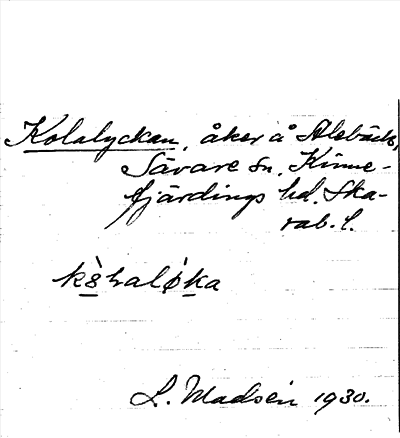 Kolalyckan, åker å Alebäck,
Sävare sn. Kinne-
fjärdings hd. Ska-
rab. l.
kòlaløka
L. Madsén 1930.